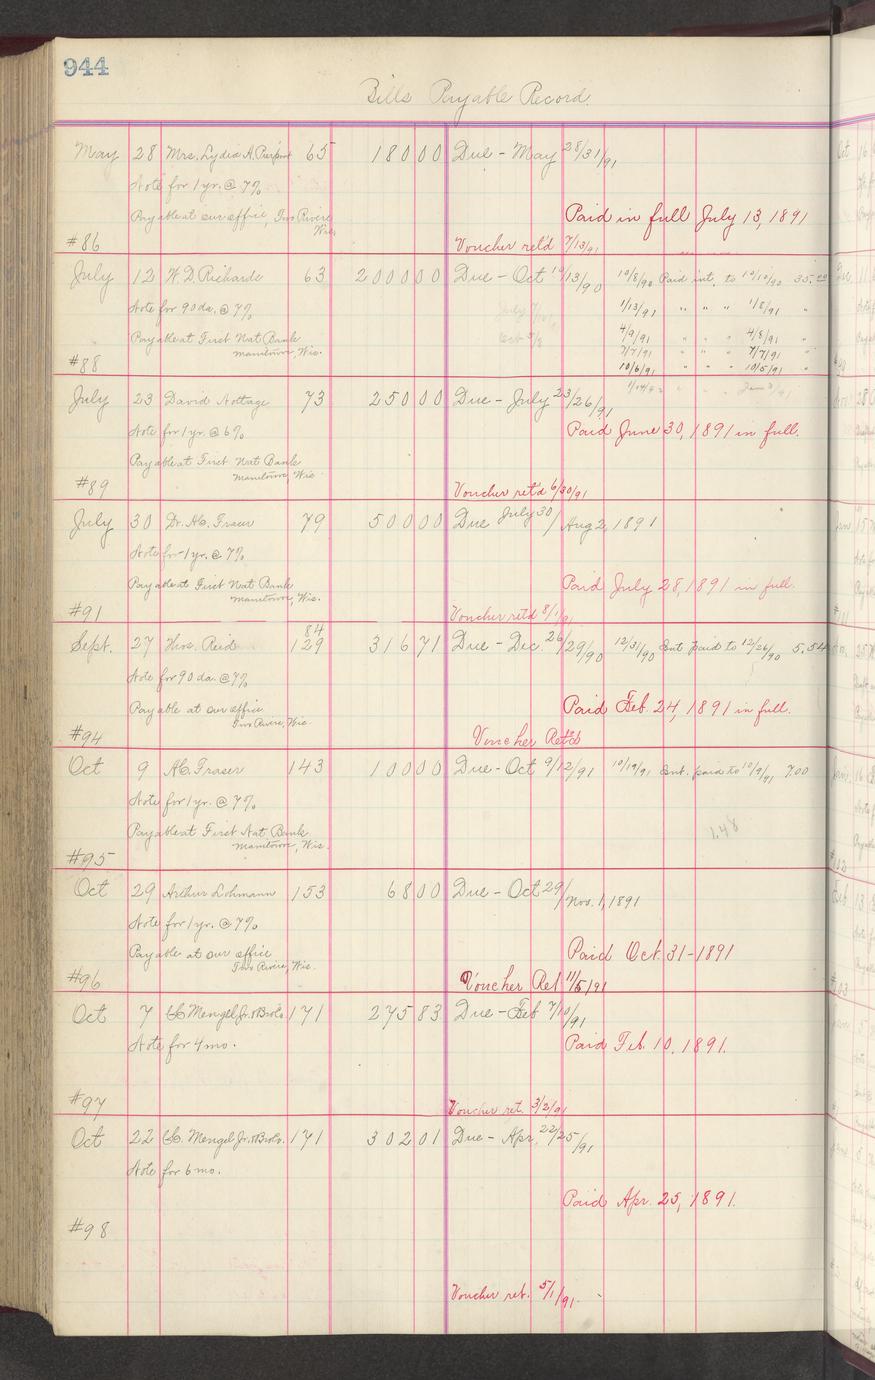 944
Bills Payable Record.
May 28 Mrs. Lydia A. Pierpont 65 180 00 Due - May 28/31/91
Note for 1 yr. @ 7%
Payable at our office, Two Rivers Wis. Paid in full July 13, 1891
#86 Voucher ret'd 7/13/91
July 12 W. D. Richards 63 2000 00 Due - Oct 10/13/90 10/8/90 Paid int. to 10/10/90 35.00
Note for 90 da. @ 7% 1/13/91 " " " 1/8/91 "
Payable at First Nat Bank 4/9/91 " " " 4/8/91 "
Manitowoc, Wis. 7/7/91 " " " 7/7/91 "
#88 10/6/91 " " " 10/5/91 "
July 23 David Nottage 73 250 00 Due - July 23/26/91
Note for 1 yr. @ 6% Paid June 30, 1891 in full.
Payable at First Nat Bank
Manitowoc, Wis
#89 Voucher ret'd 6/30/91
July 30 Dr. A.C. Fraser 79 500 00 Due July 30/Aug 2, 1891
Note for 1 yr. @ 7%
Payable at First Nat Bank Paid July 28, 1891 in full.
Manitowoc, Wis.
#91 Voucher ret'd 8/1/91
84
Sept. 27 Thos. Reid 129 316 71 Due - Dec. 26/29/90 12/31/90 Int paid to 12/26/90 5.54
Note for 90 da. @ 7%
Payable at our office Paid Feb. 24, 1891 in full.
Two Rivers, Wis.
#94 Voucher Ret'd
Oct 9 A.C. Fraser 143 100 00 Due - Oct 9/12/91 10/19/91 Int. paid to 10/9/91 7.00
Note for 1 yr. @ 7%
Payable at First Nat Bank 1.48
Manitowoc, Wis.
#95
Oct 29 Arthur Lohmann 153 68 00 Due - Oct 29/Nov. 1, 1891
Note for 1 yr. @ 7%
Payable at our office Paid Oct. 31 - 1891
Two Rivers, Wis.
#96 Voucher Ret 11/5/91
Oct 7 C.C. Mengel Jr. & Bro Co. 171 275 83 Due - Feb 7/10/91
Note for 4 mo. Paid Feb. 10, 1891.
#97 Voucher ret. 3/2/91
Oct 22 C.C. Mengel Jr. & Bro Co. 171 302 01 Due - Apr. 22/25/91
Note for 6 mo.
Paid Apr. 25, 1891.
#98
Voucher ret. 5/1/91.